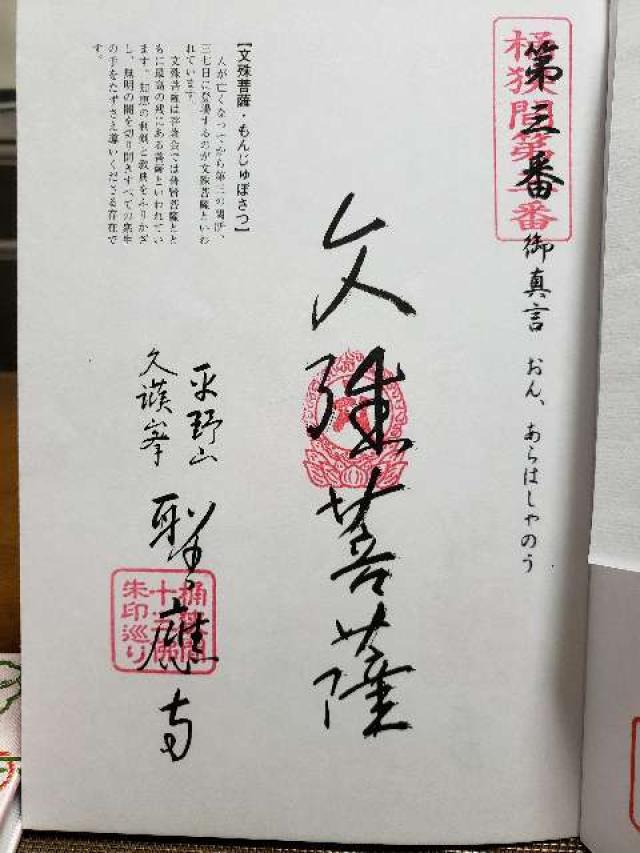 第三番
桶狭間第 番
御真言 おん、あらはしゃのう
文殊菩薩
平野山
聖應寺
桶狭間
十 佛
朱印巡り
【文殊菩薩・もんじゅぼさつ】
人が亡くなってから第三の関所、
三七日に登場するのが文殊菩薩といわ
れています。
文殊菩薩は 会では普賢菩薩とと
もに最高の にある菩薩といわれてい
ます。知恵の利剣と教典をふりかざ
し、無明の闇を切り開きすべての衆生
の手をたずさえ導いてくださる存在で
す。